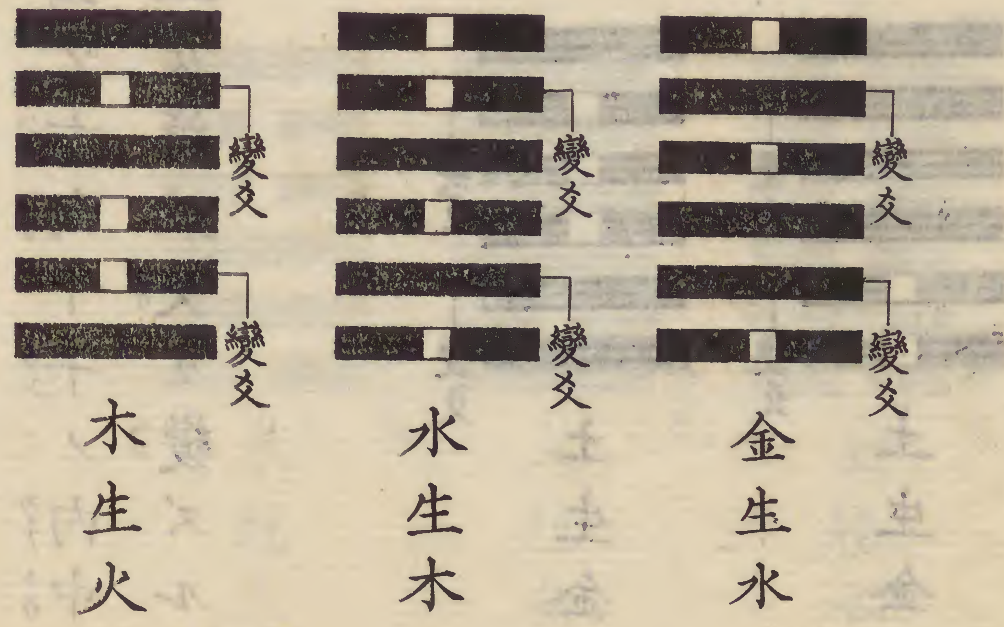 變爻
變爻
金生水
變爻
變爻
水生木
變爻
變爻
木生火